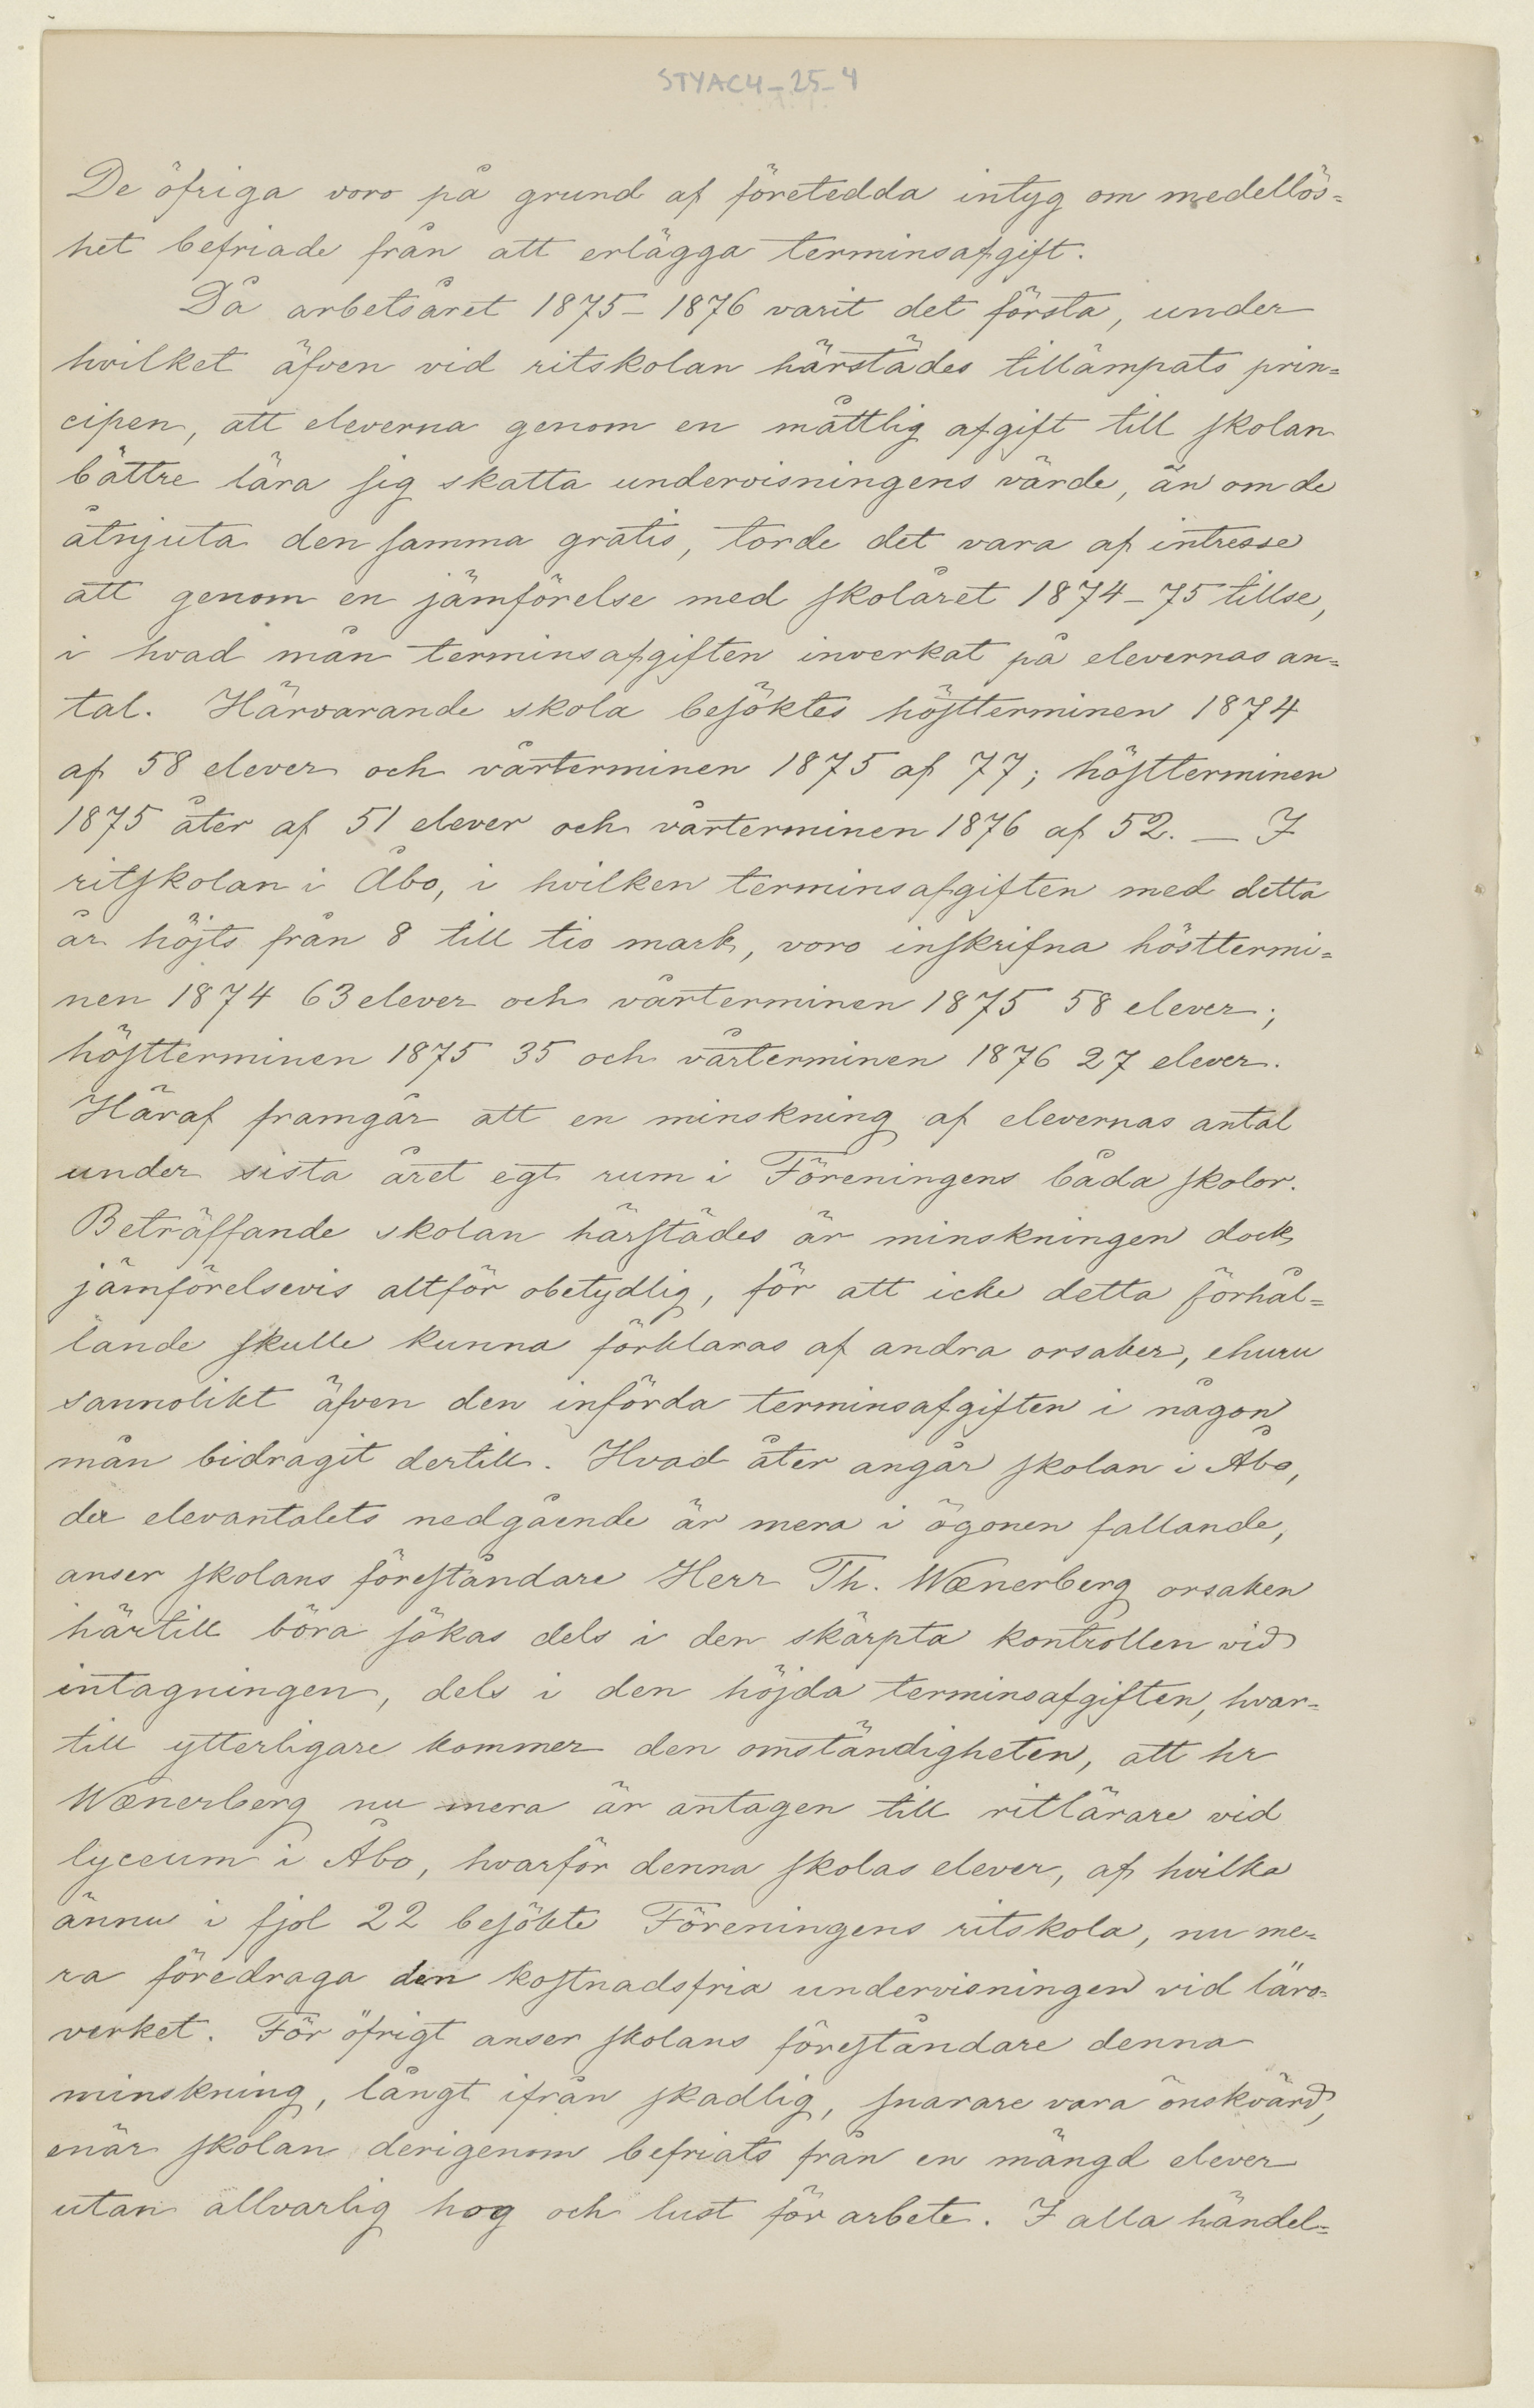 STYAC4-25-4
De öfriga voro på grund af företedda intyg om medellös=
het befriade från att erlägga terminsafgift.
Då arbetsåret 1875-1876 varit det första, under
hvilket äfven vid ritskolan härstädes tillämpats prin=
cipen, att eleverna genom en måttlig afgift till skolan
bättre lära sig skatta undervisningens värde, än om de
åtnjuta den samma gratis, torde det vara af intresse
att genom en jämförelse med skolåret 1874-75 tillse,
i hvad mån terminsafgiften inverkat på elevernas an=
tal. Härvarande skola besöktes höstterminen 1874
af 58 elever och vårterminen 1875 af 77; höstterminen
1875 åter af 51 elever och vårterminen 1876 af 52. — I
ritskolan i Åbo, i hvilken terminsafgiften med detta
år höjts från 8 till tio mark, voro inskrifna hösttermi=
nen 1874 63 elever och vårterminen 1875 58 elever;
höstterminen 1875 35 och vårterminen 1876 27 elever.
Häraf framgår att en minskning af elevernas antal
under sista året egt rum i Föreningens båda skolor.
Beträffande skolan härstädes är minskningen dock
jämförelsevis altför obetydlig, för att icke detta förhål=
lande skulle kunna förklaras af andra orsaker, ehuru
sannolikt äfven den införda terminsafgiften i någon
mån bidragit dertill. Hvad åter angår skolan i Åbo,
der elevantalets nedgående är mera i ögonen fallande,
anser skolans föreståndare Herr Th. Wænerberg orsaken
härtill böra sökas dels i den skärpta kontrollen vid
intagningen, dels i den höjda terminsafgiften, hvar=
till ytterligare kommer den omständigheten, att hr
Wænerberg nu mera är antagen till ritlärare vid
lyceum i Åbo, hvarför denna skolas elever, af hvilka
ännu i fjol 22 besökte Föreningens ritskola, nu me=
ra föredraga den kostnadsfria undervisningen vid läro=
verket. För öfrigt anser skolans föreståndare denna
minskning, långt ifrån skadlig, snarare vara önskvärd,
enär skolan derigenom befriats från en mängd elever
utan allvarlig hog och lust för arbete. I alla händel=